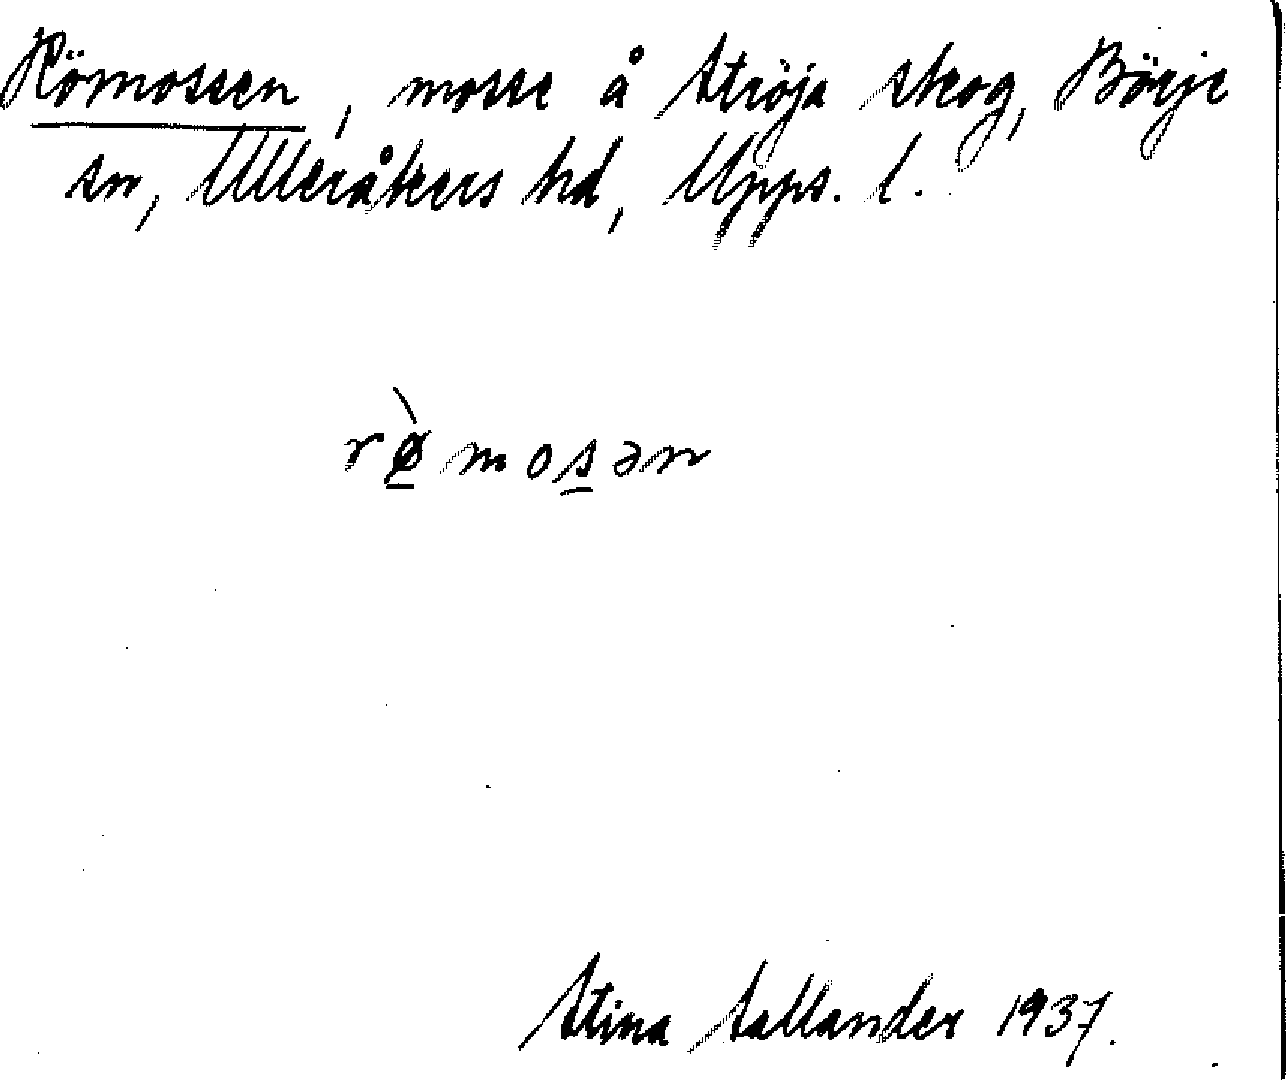 Römossen, mosse å Ströja skog, Börje
sn, Ulleråkers hd, Upps. l.
rø̠̀mos̠ən
Stina Sallander 1937.